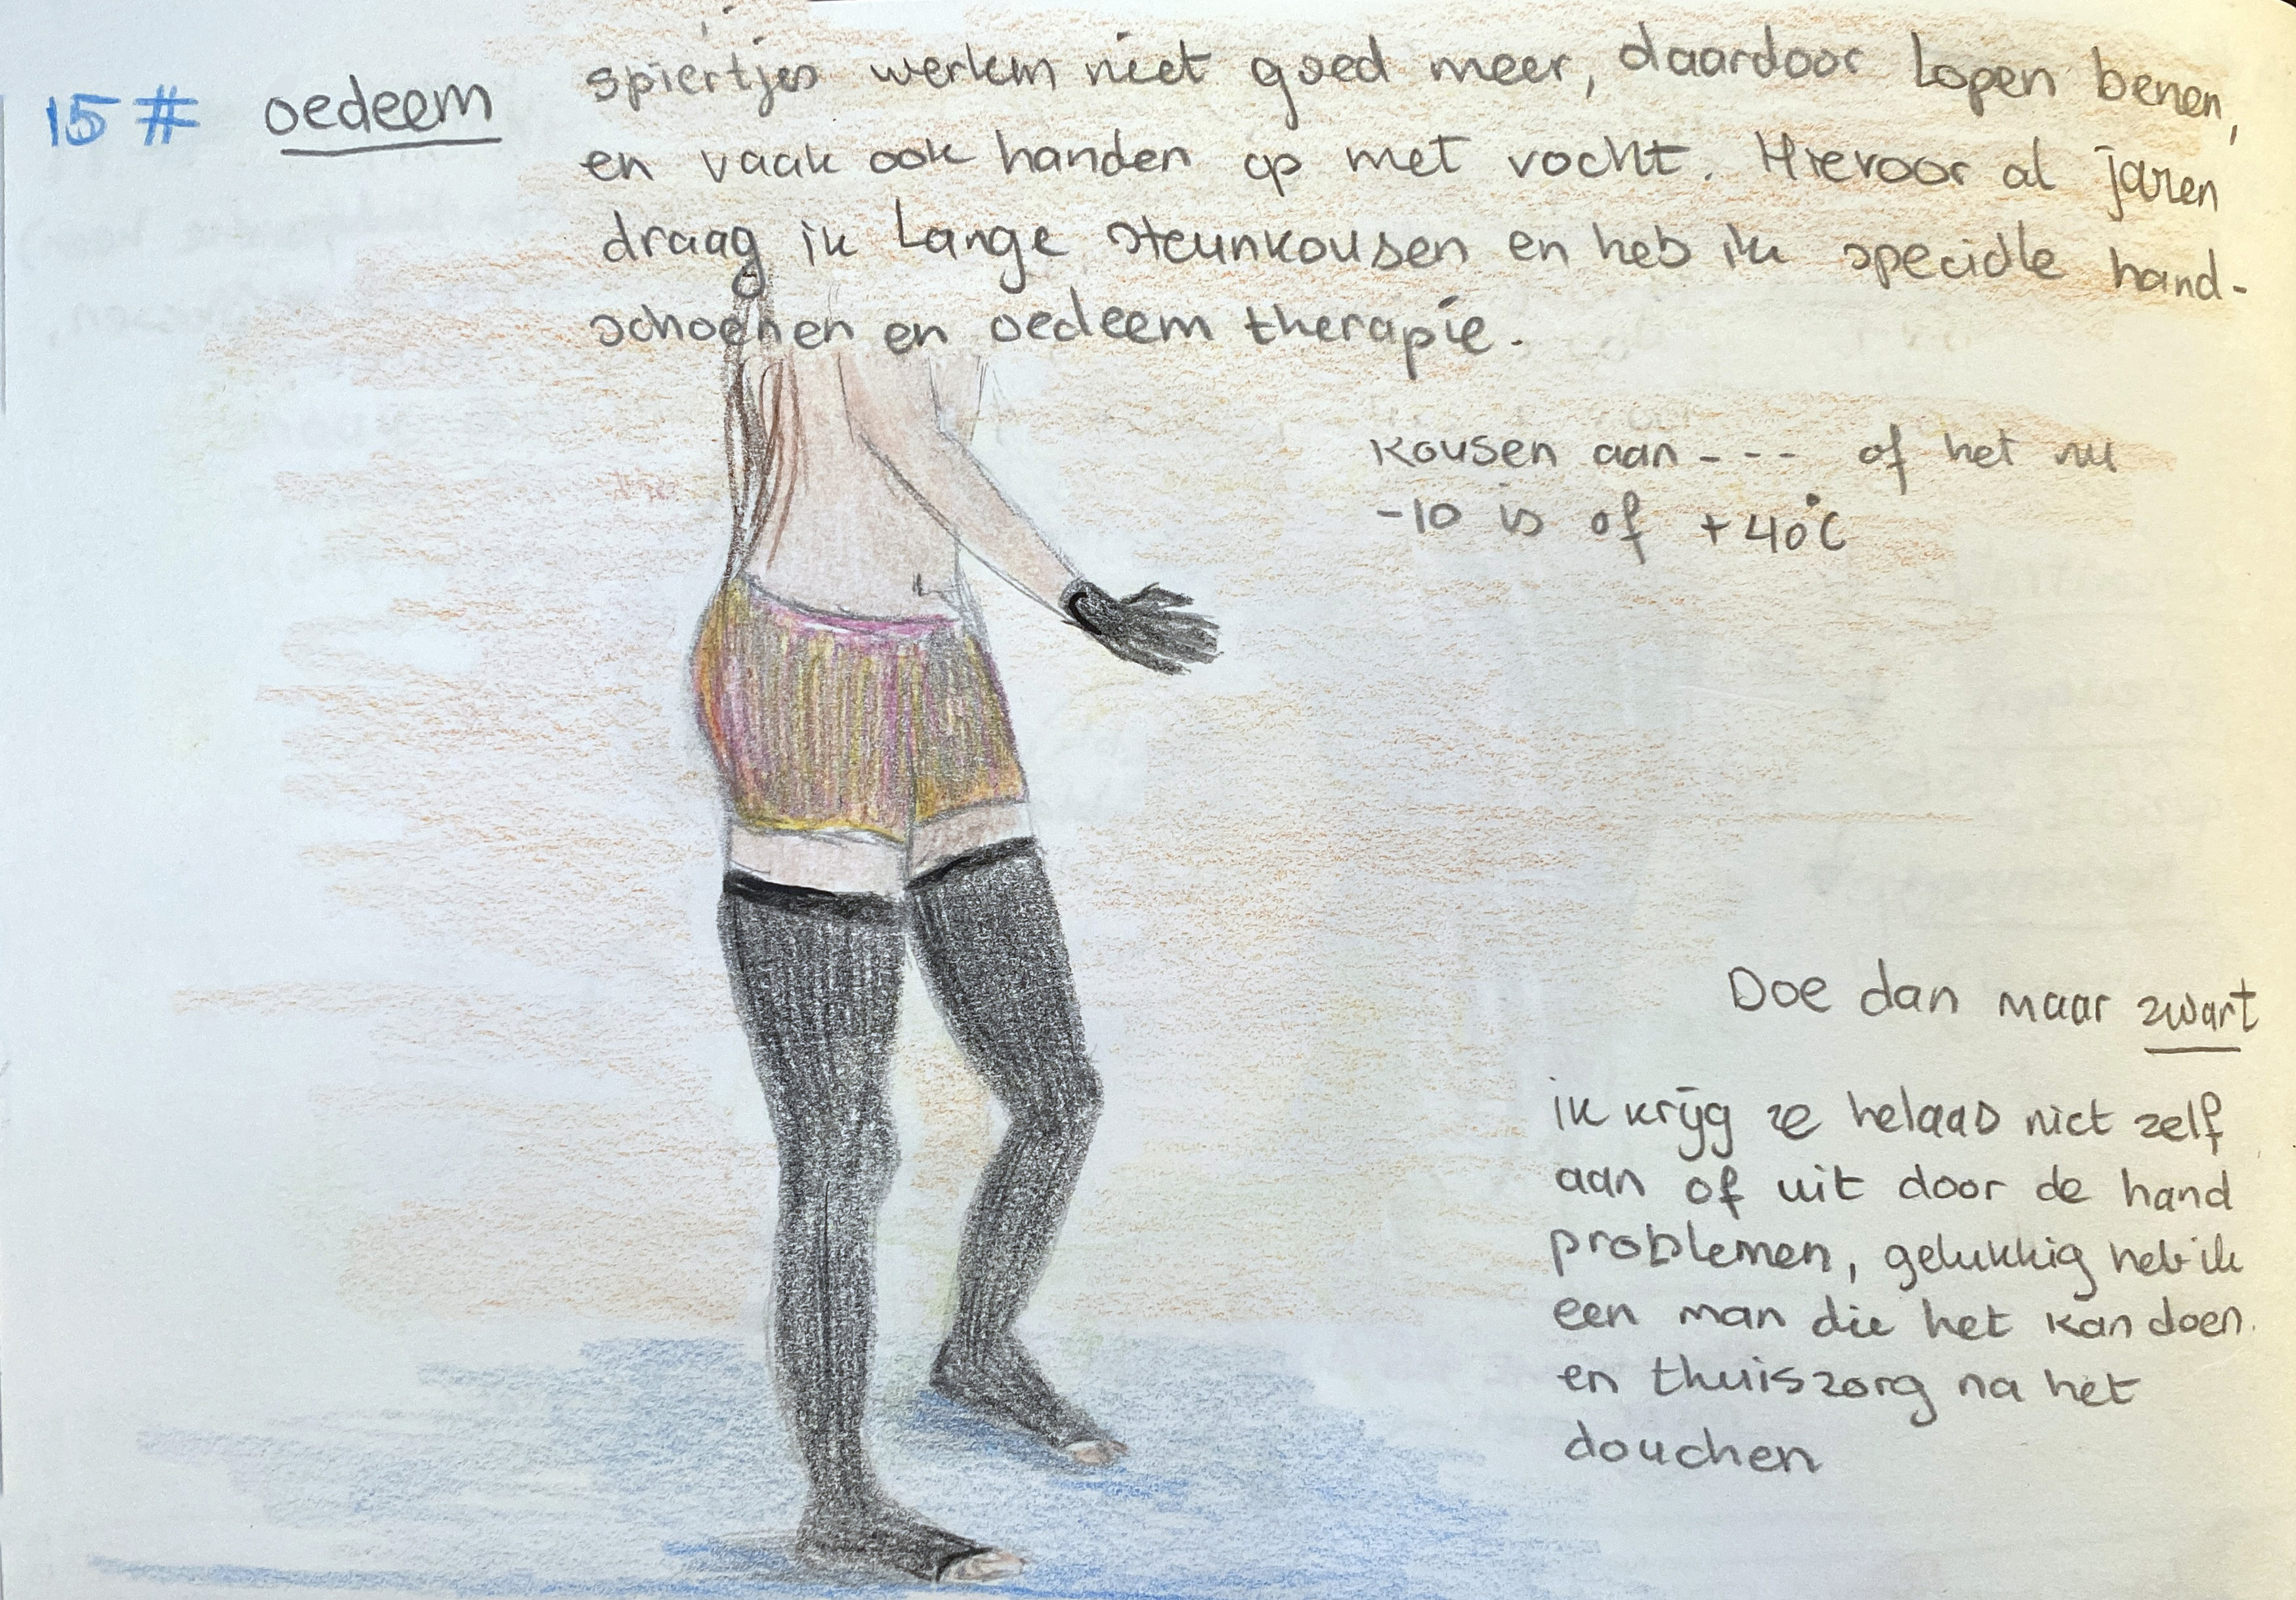 15# oedeem
spiertjes werken niet goed meer, daardoor lopen benen,
en vaak ook handen op met vocht. Hievoor al jaren
draag ik lange steunkousen en heb ik speciale hand-
schoenen en oedeem therapie.
kousen aan - - - of het nu
-10 is of +40°C
Doe dan maar zwart
ik krijg ze helaas niet zelf
aan of uit door de hand
problemen, gelukkig heb ik
een man die het kan doen.
en thuiszorg na het
douchen